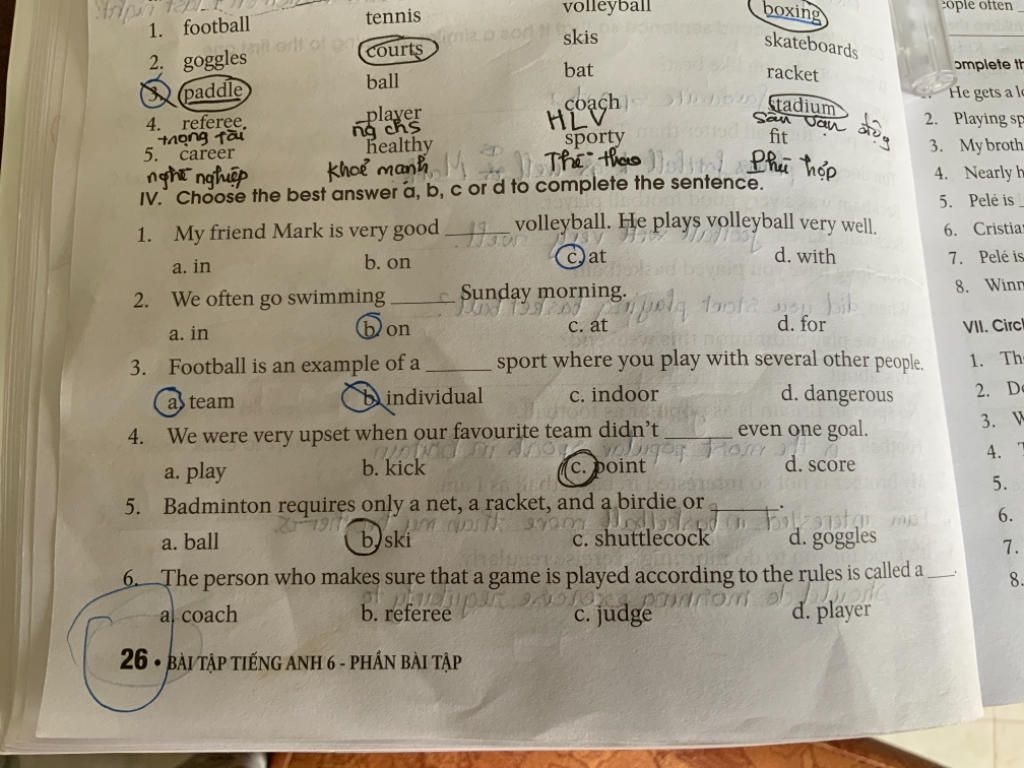 1. football tennis volleyball boxing
2. goggles courts skis skateboards
3. paddle ball bat racket
4. referee player coach stadium
trọng tài ng chs HLV sân vận động
5. career healthy sporty fit
nghề nghiệp khoẻ mạnh Thể thao Phù hợp
IV. Choose the best answer a, b, c or d to complete the sentence.
1. My friend Mark is very good ______ volleyball. He plays volleyball very well.
a. in b. on c. at d. with
2. We often go swimming ______ Sunday morning.
a. in b. on c. at d. for
3. Football is an example of a ______ sport where you play with several other people.
a. team b. individual c. indoor d. dangerous
4. We were very upset when our favourite team didn't ______ even one goal.
a. play b. kick c. point d. score
5. Badminton requires only a net, a racket, and a birdie or ______.
a. ball b. ski c. shuttlecock d. goggles
6. The person who makes sure that a game is played according to the rules is called a ___.
a. coach b. referee c. judge d. player
26 • BÀI TẬP TIẾNG ANH 6 - PHẦN BÀI TẬP
eople often
omplete th
He gets a lo
2. Playing sp
3. My broth
4. Nearly h
5. Pelé is
6. Cristia
7. Pelé is
8. Winn
VII. Circl
1. Th
2. D
3.
4.
5.
6.
7.
8.